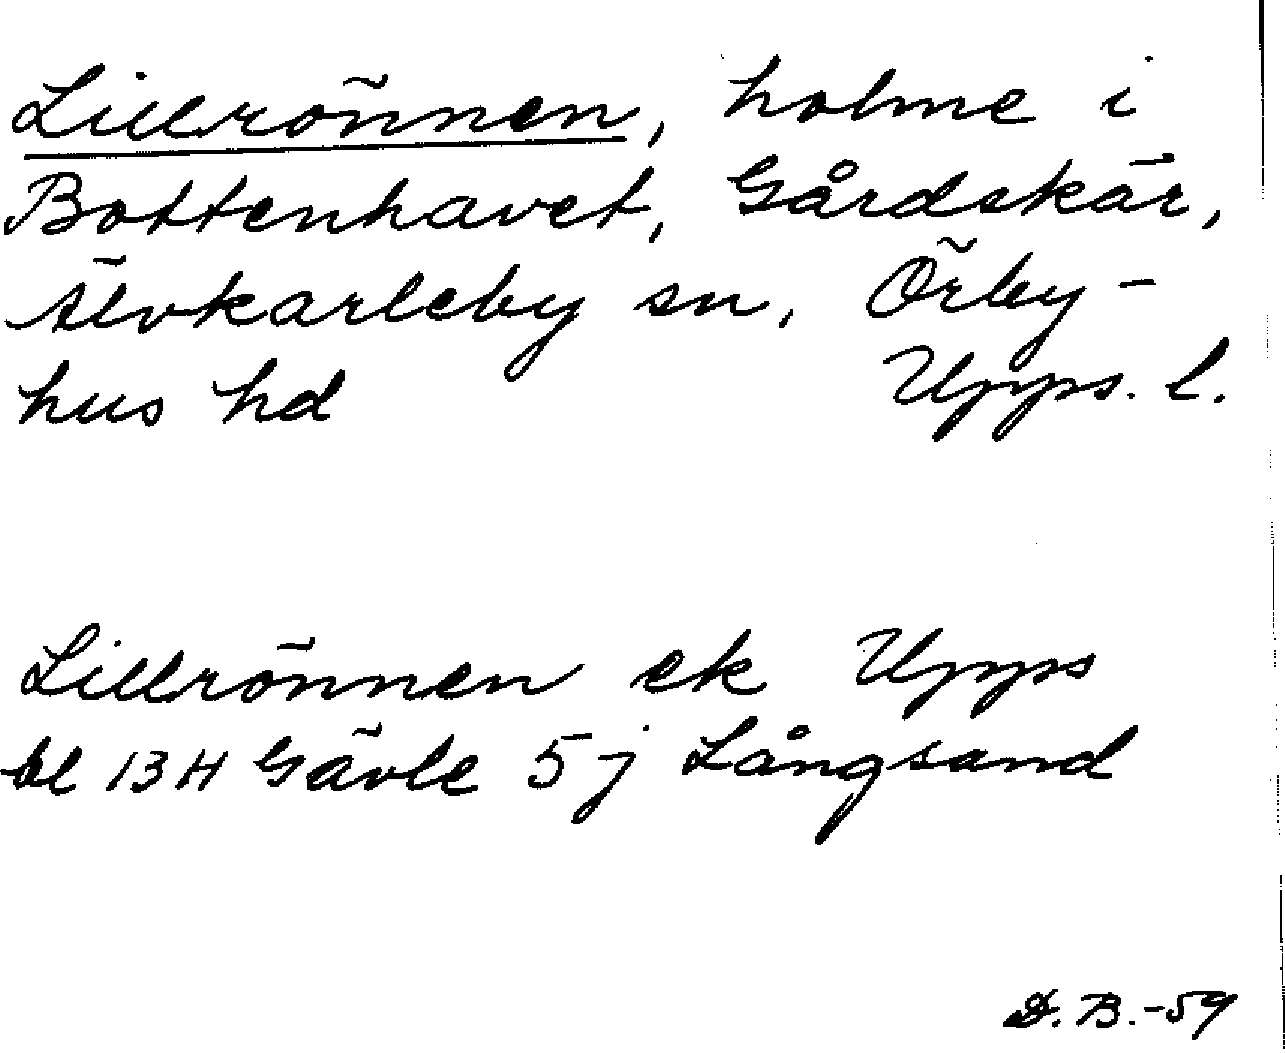 Lillrönnen, holme i
Bottenhavet, Gårdskär,
Älvkarleby sn, Örby-
hus hd Upps. l.
Lillrönnen ek Upps
bl 13H Gävle 5j Långsand
D. B. -59